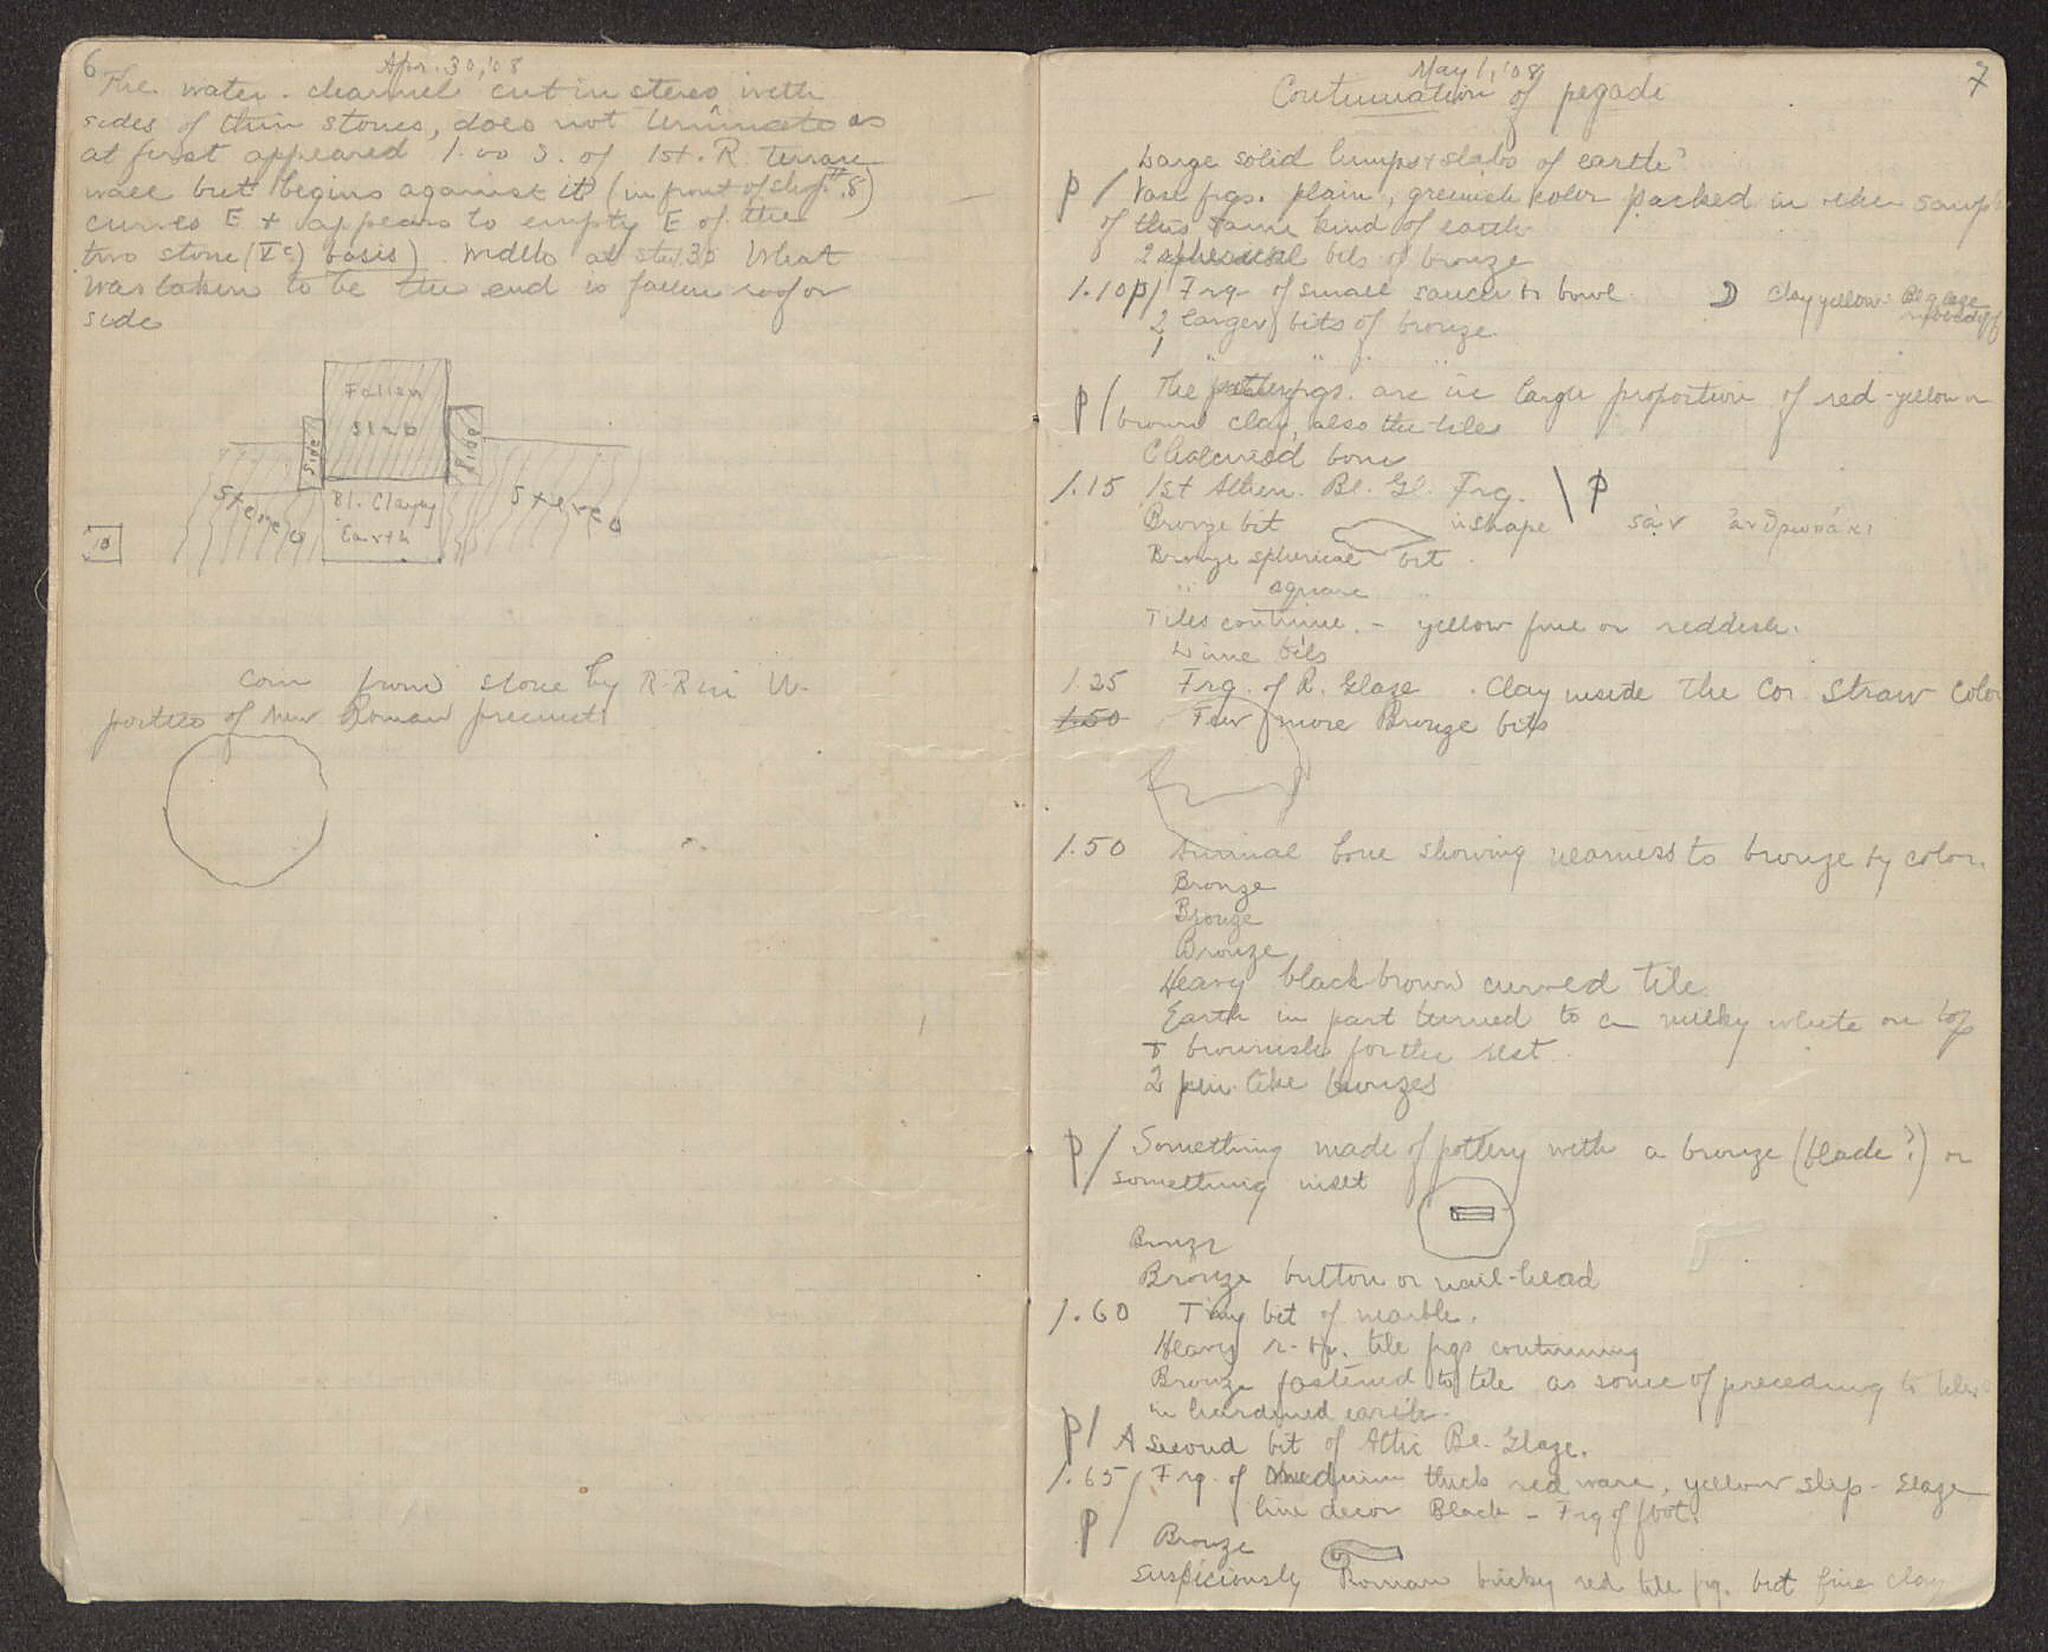 6
Apr. 30, '08
The water-channel cut in stereo with
sides of thin stones, does not terminate as
at first appeared 1.00 S. of 1st. R. terrace
wall but begins against it (in front of shop # 8)
curves E + appears to empty E of the
two stone (Vc) basis). Width at start 30 What
was taken to be the end is fallen roof or
side
Fallen
Slab
Side
Side
Stereo
Bl. Clayey
Earth
Stereo
10
Coin from stone by R-R in W.
portico of New Roman precinct
7
May 1, '08
Continuation of pegadi
Large solid lumps + slabs of earth?
p / Vase frgs. plain, greenish color packed in
of this same kind of earth
2 spherical bits of bronze
1.10 p/ Frg. of small saucer or bowl. clay yellow. Bl glaze
rubbed off
2 larger bits of bronze
1 " " " "
p / The pottery frgs. are in large proportion of red-yellow or
brown clay, also the tiles
Chalcined bone
1.15 1st Athen. Bl. Gl. Frg. \ p
Bronze bit in shape σὰν ἀνθρωπάκι
Bronze spherical bit.
" square "
Tiles continue. – yellow fine or reddish.
Lime bits
1.25 Frg. of R. Glaze. Clay inside the Cor. Straw Color
1.50 Few more Bronze bits
1.50 Animal bone showing nearness to bronze by color.
Bronze
Bronze
Bronze
Heavy black brown curved tile.
Earth in part turned to a milky white on top
+ brownish for the rest.
2 pin-like bronzes
p / Something made of pottery with a bronze (blade?) or
something inset
Bronze
Bronze button or nail-head
1.60 Tiny bit of marble.
Heavy r-br. tile frgs continuing
Bronze fastened to tile as some of preceding to tiles
in hardened earth.
p / A second bit of Attic Bl. Glaze.
1.65 / Frg. of Medium thick red ware, yellow slip – Glaze
line decor Black – Frg of foot.
p / Bronze
Suspiciously Roman bricky red tile frg. but fine clay